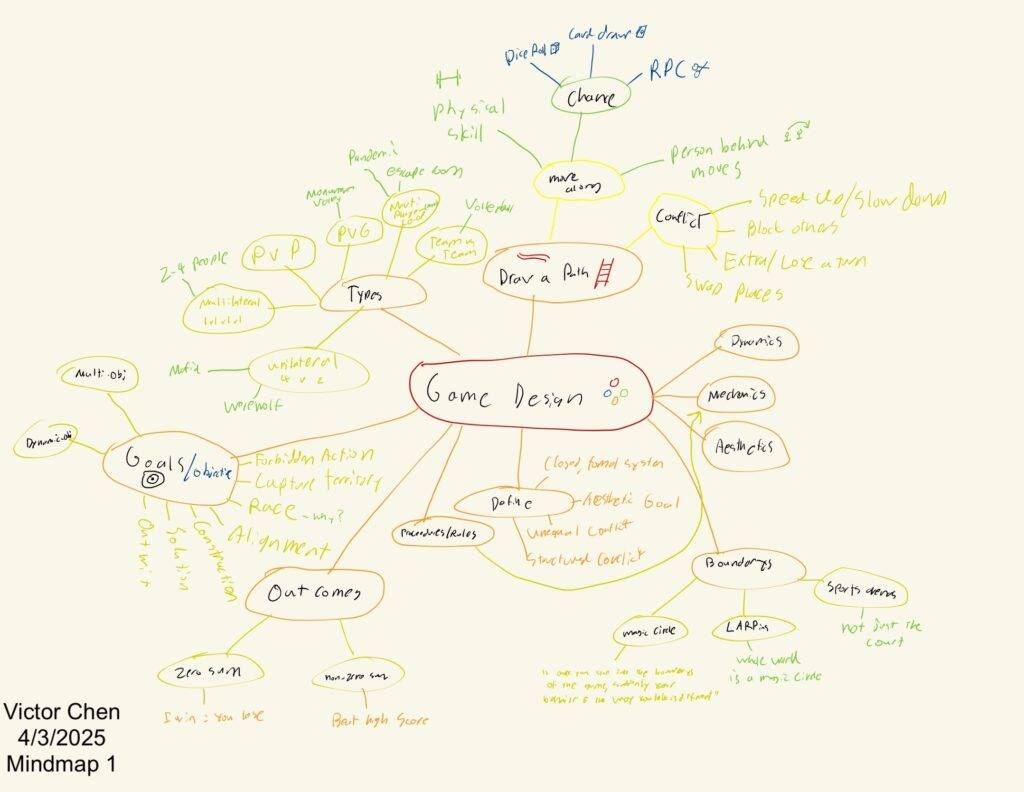 Dice Roll
Card draw
RPC
Chance
Physical
skill
Person behind
moves
move
along
Conflict
Speed Up/Slow down
Block others
Extra/Lose a turn
Swap Places
Draw a Path
Pandemic
escape room
Volleyball
PVG
Team v
Team
PVP
2-4 people
Multilateral
1v1v1v1
Types
Mafia
Unilateral
4 v 2
Werewolf
Game Design
Dynamics
Mechanics
Aesthetics
Multi.obj
Dynamic.obj
Goals/Objective
Forbidden Action
Capture territory
Race - why?
Alignment
Construction
Solution
Outwit
Define
Closed, formal system
Aesthetic Goal
Unequal Conflict
Structured Conflict
Procedures/Rules
Outcomes
Zero sum
I win : You lose
non-zero sum
Beat high Score
Boundarys
magic circle
LARPing
whole world
is a magic circle
Sports arenas
not just the
court
Victor Chen
4/3/2025
Mindmap 1